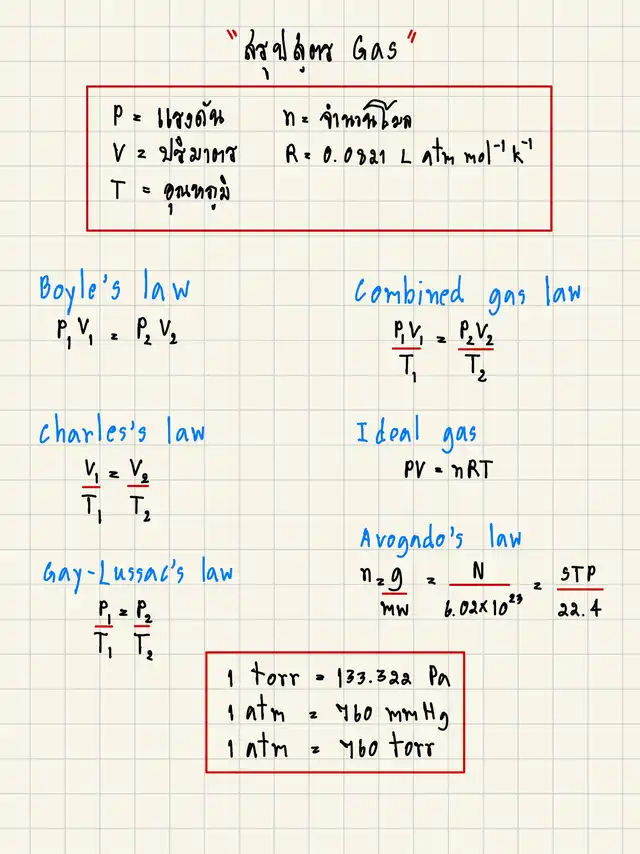 "สรุปสูตร Gas"
P = แรงดัน
n = จำนวนโมล
V = ปริมาตร
R = 0.0821 L atm mol⁻¹ k⁻¹
T = อุณหภูมิ
Boyle's law
P₁V₁ = P₂V₂
Combined gas law
P₁V₁/T₁ = P₂V₂/T₂
Charles's law
V₁/T₁ = V₂/T₂
Ideal gas
PV = nRT
Avogado's law
n = g/mw = N/6.02×10²³ = STP/22.4
Gay-Lussac's law
P₁/T₁ = P₂/T₂
1 torr = 133.322 Pa
1 atm = 760 mmHg
1 atm = 760 torr